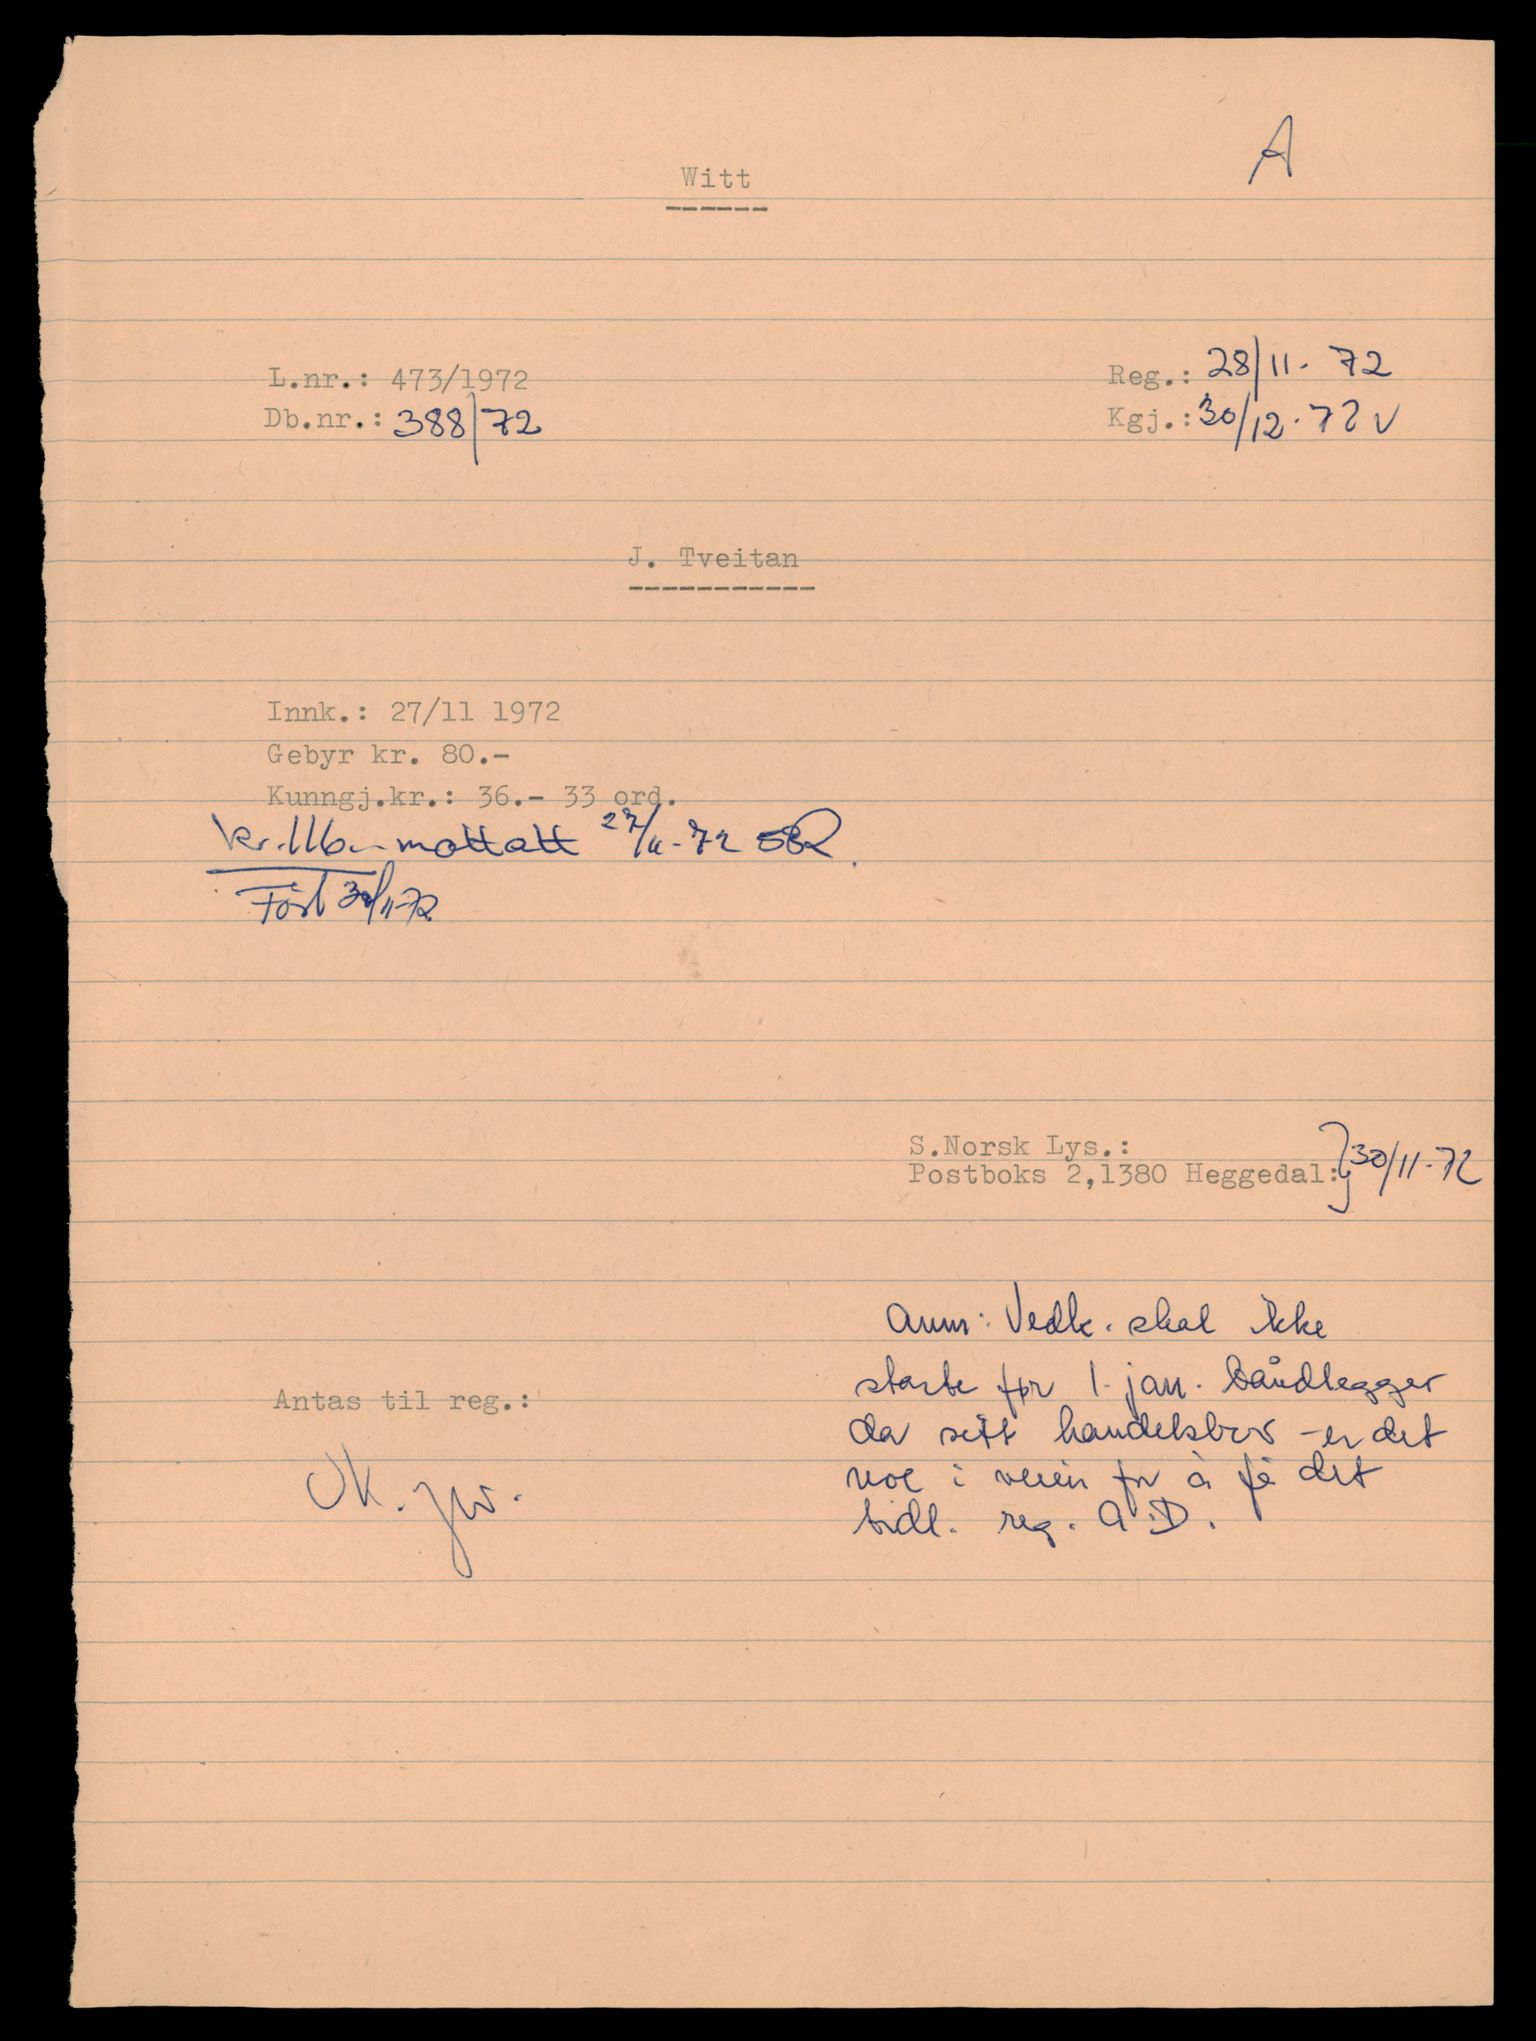 A
Witt
L.nr.: 473/1972
Reg.: 28/11. 72
Db.nr.: 388/72
Kgj.: 30/12.72 v
J. Tveitan
Innk.: 27/11 1972
Gebyr kr. 80.-
Kunngj.kr.: 36.- 33 ord.
kr. 116.- mottatt 27/11-72
Ført 30/11-72
S.Norsk Lys.:
Postboks 2,1380 Heggedal: 30/11-72
Anm: Vedk. skal ikke
starte før 1. jan. båndlegger
Antas til reg.:
da sitt handelsbrev - er det
noe i veien for å få det
OK.
tidl. reg. A.D.